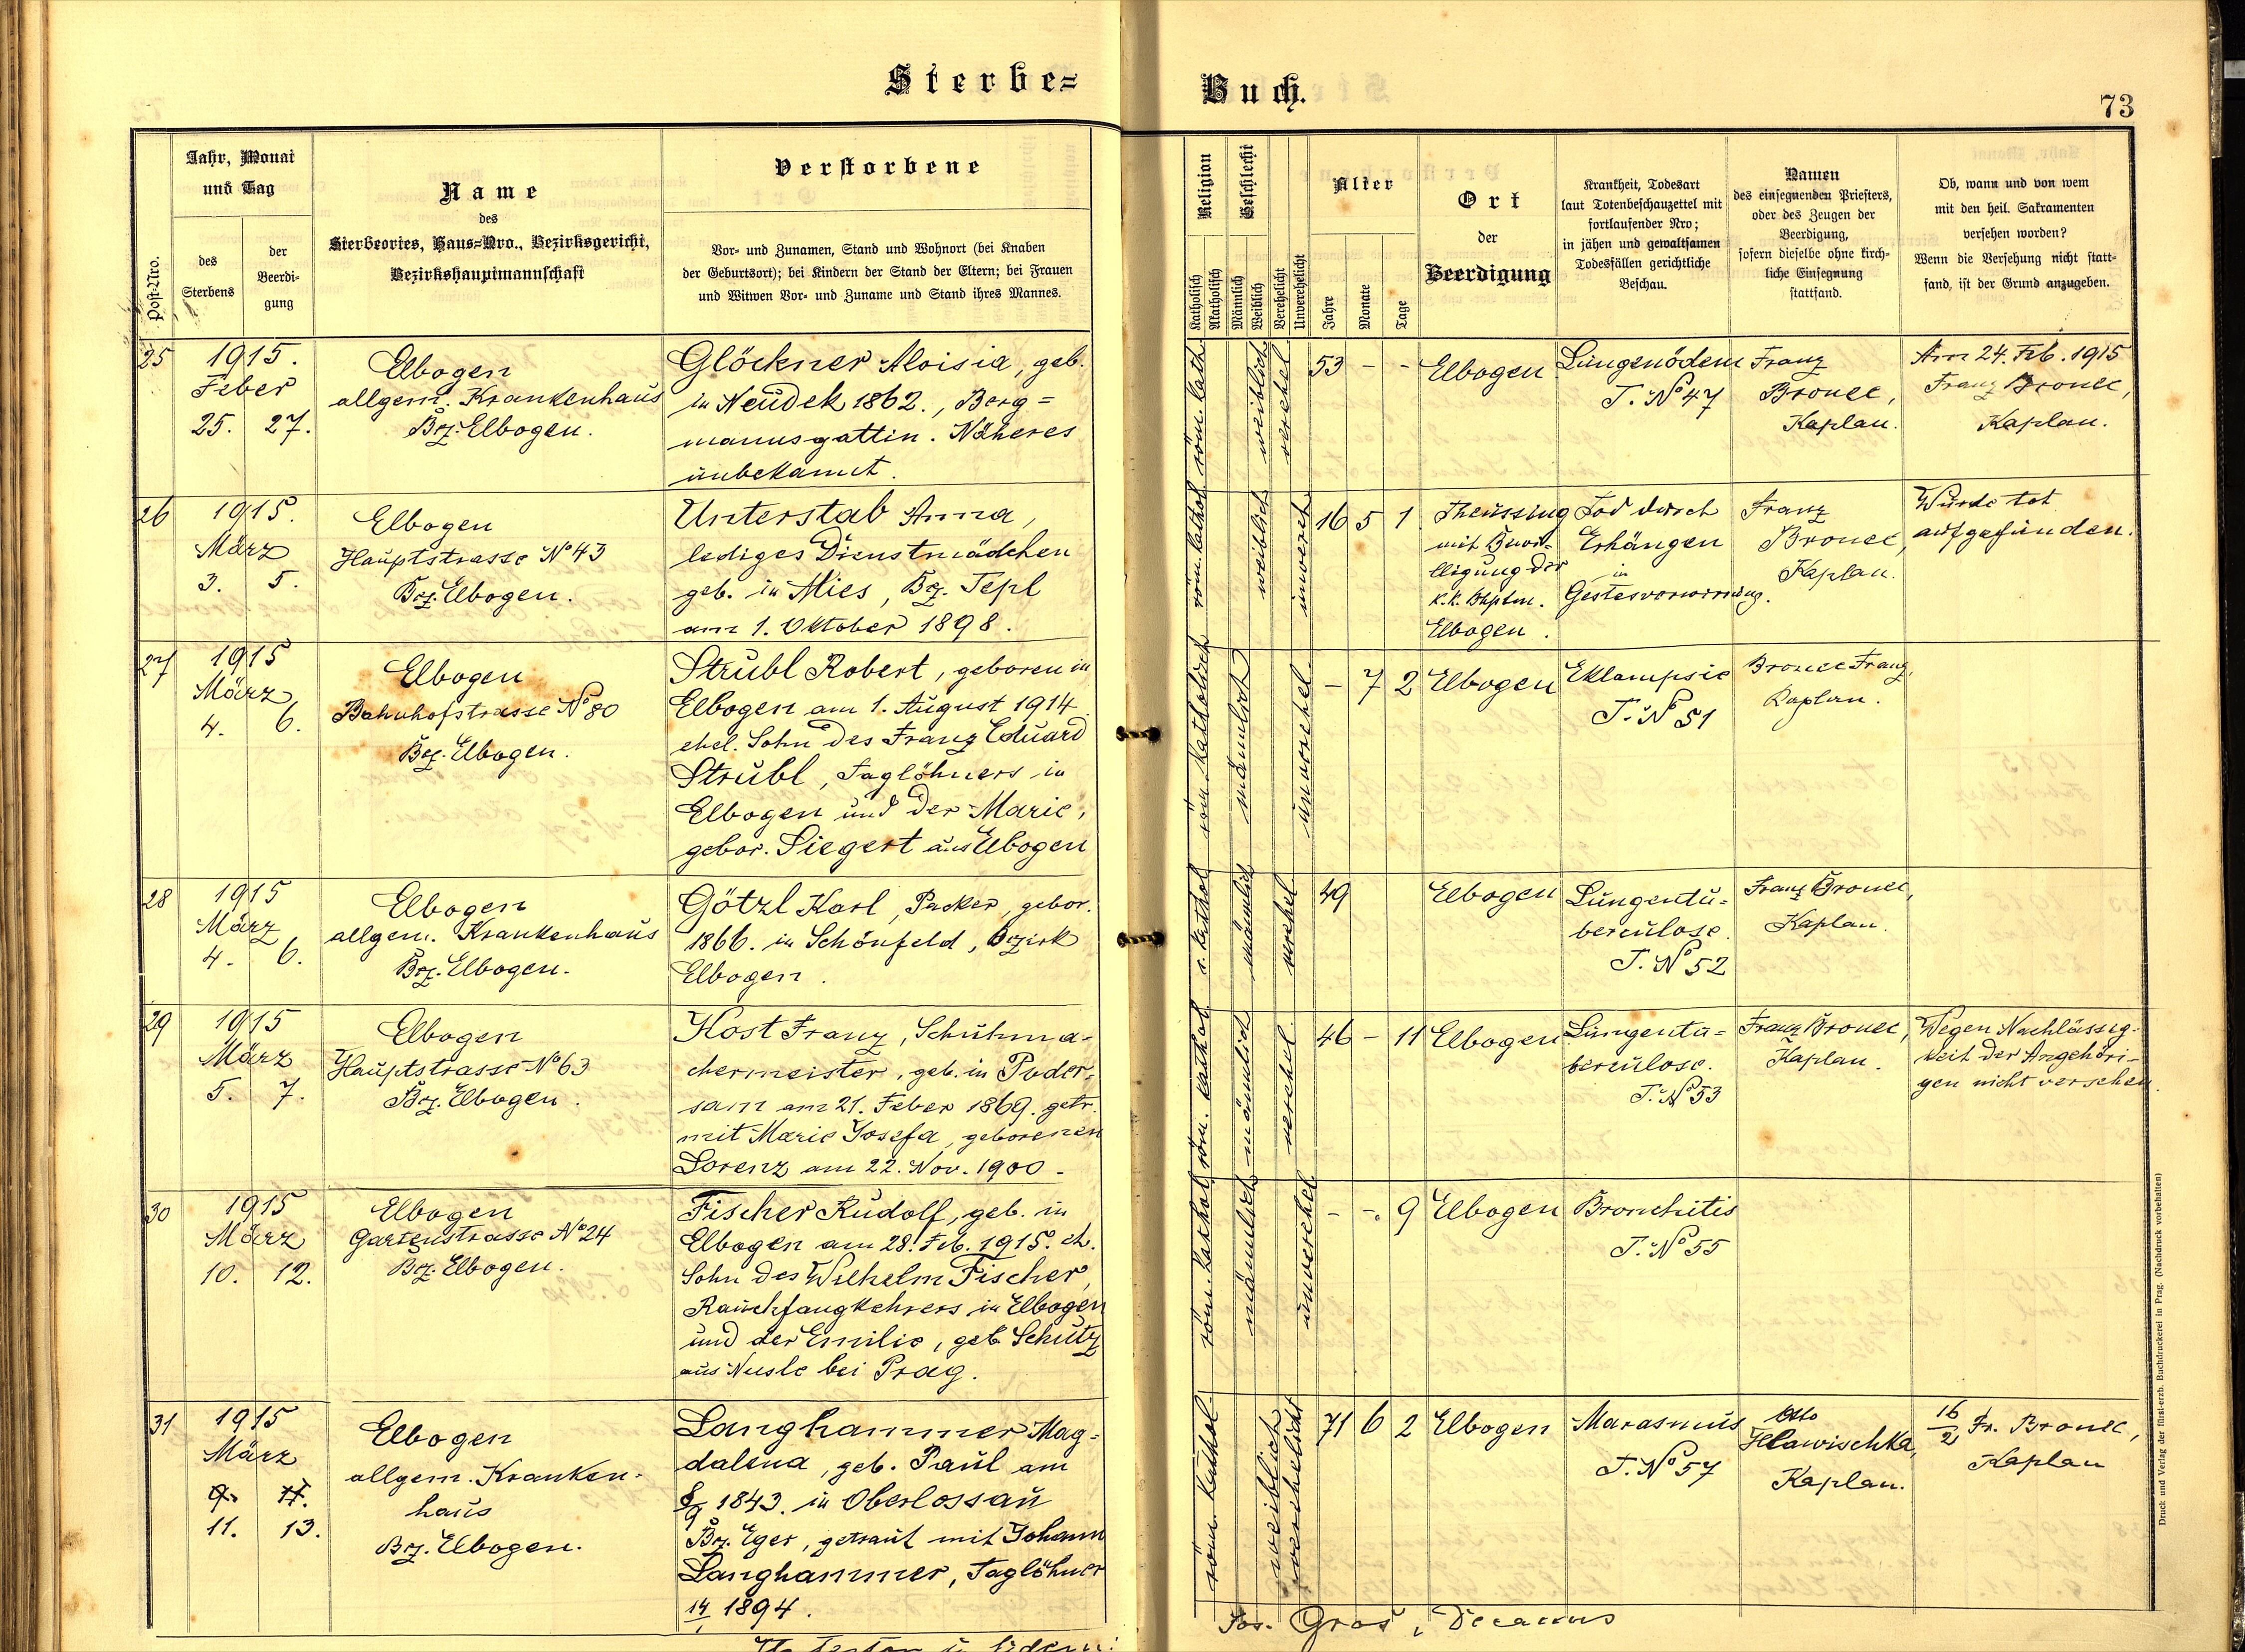 Sterbe=
Buch.
73
Post-Nro.
Jahr, Monat
und Tag
des
Sterbens
der
Beerdi-
gung
Name
des
Sterbeortes, Haus-Nro., Bezirksgericht,
Bezirkshauptmannschaft
Verstorbene
Vor- und Zunamen, Stand und Wohnort (bei Knaben
der Geburtsort); bei Kindern der Stand der Eltern; bei Frauen
und Witwen Vor- und Zuname und Stand ihres Mannes.
Religion
Katholisch
Akatholisch
Geschlecht
Männlich
Weiblich
Verehelicht
Unverehelicht
Alter
Jahre
Monate
Tage
Ort
der
Beerdigung
Krankheit, Todesart
laut Totenbeschauzettel mit
fortlaufender Nro;
in jähen und gewaltsamen
Todesfällen gerichtliche
Beschau.
Namen
des einsegnenden Priesters,
oder des Zeugen der
Beerdigung,
sofern dieselbe ohne kirch-
liche Einsegnung
stattfand.
Ob, wann und von wem
mit den heil. Sakramenten
versehen worden?
Wenn die Versehung nicht statt-
fand, ist der Grund anzugeben.
25
1915.
Feber
25. 27.
Elbogen
allgem. Krankenhaus
Bez. Elbogen.
Glöckner Aloisia, geb.
in Neudek 1862., Berg=
mannsgattin. Näheres
unbekannt.
röm. kath
weiblich
verehel
53 - -
Elbogen
Lungenödem
T. No 47
Franz
Bronec,
Kaplan.
Am 24. Feb. 1915
Franz Bronec,
Kaplan.
26
1915.
März
3. 5.
Elbogen
Hauptstrasse No 43
Bez. Elbogen.
Unterstab Anna,
lediges Dienstmädchen
geb. in Mies, Bez. Tepl
am 1. Oktober 1898.
röm. kathol
weiblich
unvereh
16 5 1
Theussing
mit Bewi-
lligung der
k.k. Bhptm.
Elbogen.
Tod durch
Erhängen
in
Gestesverwirrung.
Franz
Bronec,
Kaplan.
Wurde tot
aufgefunden.
27
1915
März
4. 6.
Elbogen
Bahnhofstrasse No 80
Bez. Elbogen.
Strubl Robert, geboren in
Elbogen am 1. August 1914
ehel. Sohn des Franz Eduard
Strubl, Taglöhners in
Elbogen und der Marie,
gebor. Siegert aus Elbogen
röm. katholisch
männlich
unverehel
- 7 2
Elbogen
Eklampsie
T. No 51
Bronec Franz,
Kaplan.
28
1915
März
4. 6.
Elbogen
allgem. Krankenhaus
Bez. Elbogen.
Götzl Karl, Packer, gebor.
1866. in Schönfeld, Bezirk
Elbogen.
r. kathol
männlich
verehel
49
Elbogen
Lungentu=
berculose.
T. No 52
Franz Bronec,
Kaplan.
29
1915
März
5. 7.
Elbogen
Hauptstrasse No 63
Bez. Elbogen.
Kost Franz, Schuhma-
chermeister, geb. in Poder-
sam am 21. Feber 1869. getr.
mit Marie Josefa, geborenen
Lorenz am 22. Nov. 1900.
röm. kathol
männlich
verehel
46 - 11
Elbogen
Lungentu=
berculose.
T. No 53
Franz Bronec,
Kaplan.
Wegen Nachlässig-
keit der Angehöri-
gen nicht versehen.
30
1915
März
10. 12.
Elbogen
Gartenstrasse No 24
Bez. Elbogen.
Fischer Rudolf, geb. in
Elbogen am 28. Feb. 1915. eh.
Sohn des Wilhelm Fischer,
Rauchfangkehrers in Elbogen
und der Emilie, geb. Schütz
aus Nusle bei Prag.
röm. kathol
männlich
unverehel
- -. 9
Elbogen
Bronchitis
T. No 55
31
1915
März
9. 11.
11. 13.
Elbogen
allgem. Kranken-
haus
Bez. Elbogen.
Langhammer Mag=
dalena, geb. Paul am
8/9 1843. in Oberlossau
Bez. Eger, getraut mit Johann
Langhammer, Taglöhner
14/ 1894.
röm. kathol
weiblich
verehelicht
71 6 2
Elbogen
Marasmus
T. No 57
Otto
Hlawischka,
Kaplan.
16/2 Fr. Bronec,
Kaplan
Jos. Gros, Decanus
Druck und Verlag der fürst-erzb. Buchdruckerei in Prag. (Nachdruck vorbehalten)